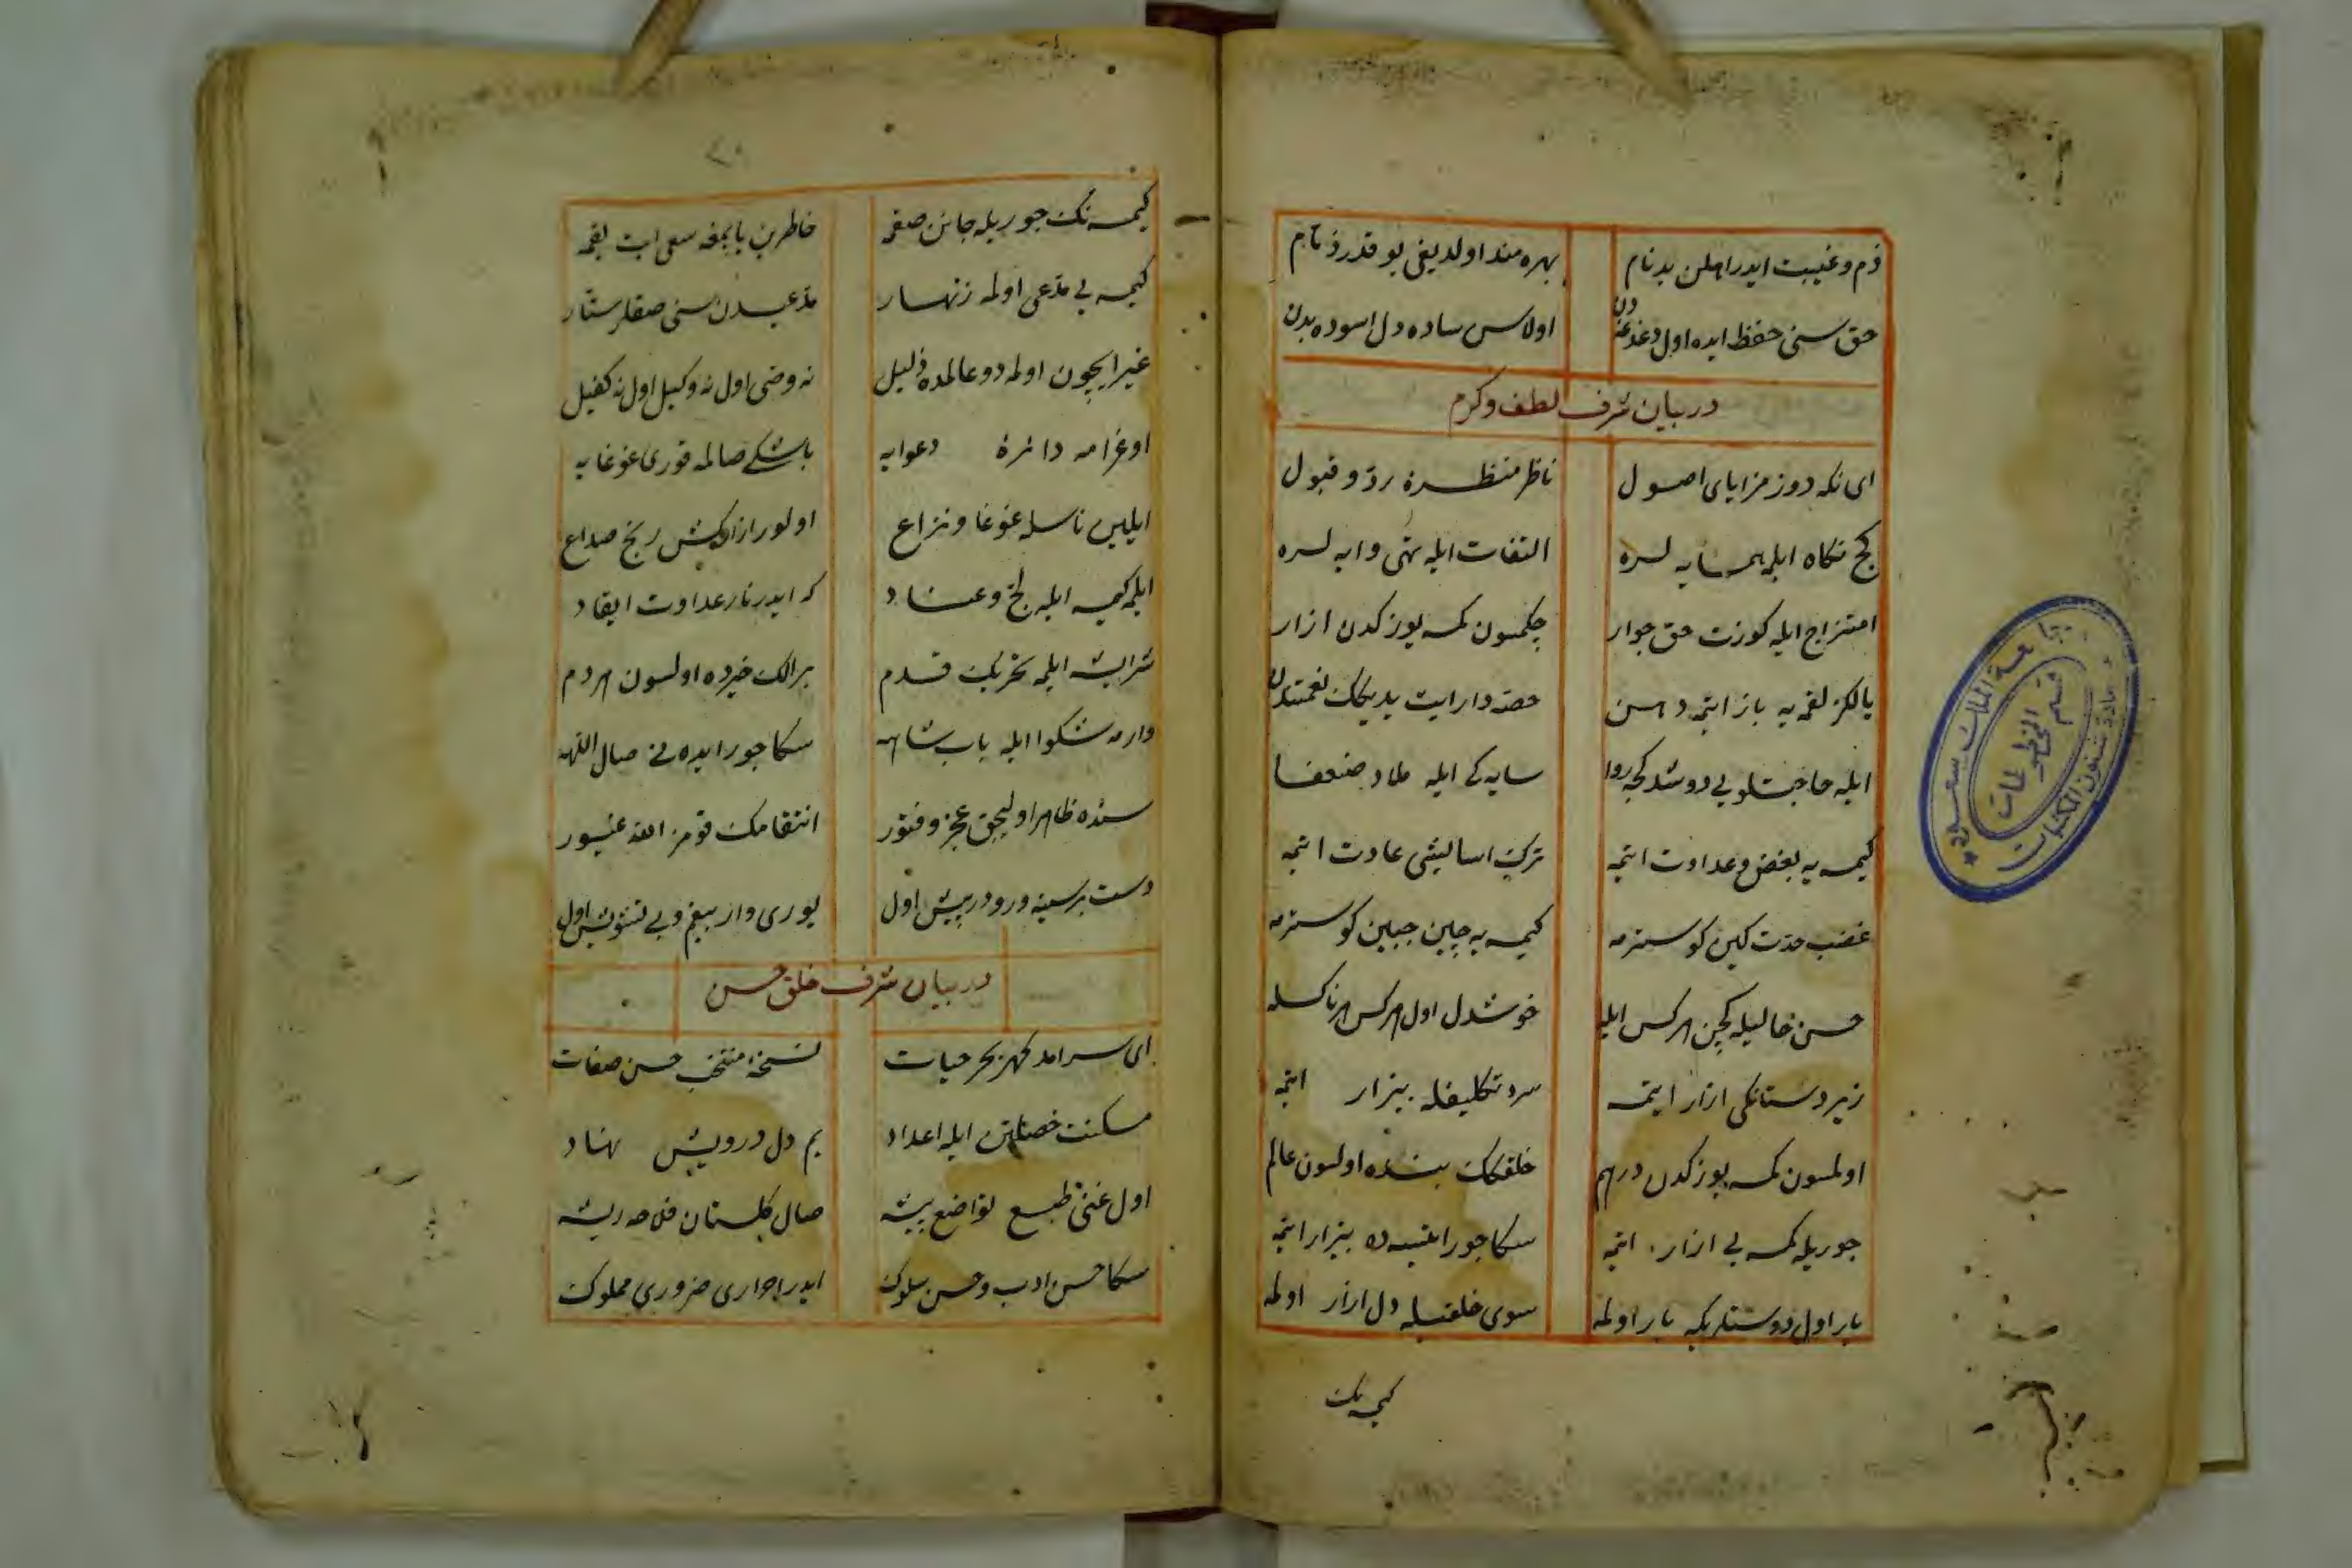 ذم و غیبت ایدر اهلن بدنام بهره مند اولدیغی بو قدر ذم تام
حق سنی حفظ ایده اول دغدغه دن اولاسن ساده دل اسوده بدن
در بیان شرف لطف و کرم
ای نکه دوز مزایای اصول ناظر منظره رد و قبول
کج نکاه ایلمه همسایه لره التفات ایله تهی وایه لره
امتزاج ایله کوزت حق جوار چکمسون کمسه یوزکدن ازار
یالکز لقمه یه باز ایتمه دهن حصه دار ایت یدیکک نعمتدن
ایله حاجتلویی دوشدکجه روا سایه کی ایله ملاذ ضعفا
کیمسه یه بغض و عداوت ایتمه ترک اسایشی عادت ایتمه
غضب حدت کین کوسترمه کیمسه یه چین جبین کوسترمه
حسن خالیله کچن هرکس ایله خوشدل اول هرکس هرناکسله
زیردستانکی ازار ایتمه سرد تکلیفله بیزار ایتمه
اولمسون کمسه یوزکدن درهم خلقکک بنده اولسون عالم
جوریله کمسه یی ازار ایتمه سکا جور ایتسه ده بیزار ایتمه
یار اول دوستلریکه بار اولمه سوی خلقیله دل ازار اولمه
کیمسه نک
٢٠
کیمسه نک جوریله جانن صقمه خاطرین یاپمغه سعی ایت یقمه
کیمسه یی مدعی اولمه زنهار مدعیدن سنی صقلر ستار
غیر ایچون اولمه دو عالمده ذلیل نه وصی اول نه وکیل اول نه کفیل
اوغرامه دائره دعوایه باشکی صالمه قوری غوغایه
ایلین ناسله غوغا و نزاع اولور ازارکش رنج صداع
ایلمه کیمسه ایله لج و عناد که ایدر نار عداوت ایقاد
شر ایشه ایلمه تحریک قدم بر الک خیرده اولسون هردم
وارمه شکوا ایله باب شاهه سکا جور ایده نی صال اللهه
سنده ظاهر اولیجق عجز و فتور انتقامک قومز الله غیور
دست بر سینه و رو در پیش اول یوری وار بیغم و بی تشویش اول
در بیان شرف خلق حسن
ای سرامد کهر بحر حیات نسخه منتخب حسن صفات
مسکنت خصلتن ایله اعداد یم دل درویش نهاد
اول غنی طبع تواضع پیشه صال کلستان فلاحه ریشه
سکا حسن ادب و حسن سلوک ایدر احراری ضروری مملوک
جامعة الملك سعود
قسم المخطوطات
عمادة شئون المكتبات